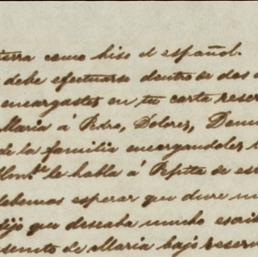 terra como hiso el español.
debe efectuarse dentro de dos
encargastes en tu carta reser
Maria á Pedro, Dolores,
de la familia encargandoles
le habla á Pepita de es
debemos esperar que dure
dijo que deseaba mucho escri
de Maria bajo reser